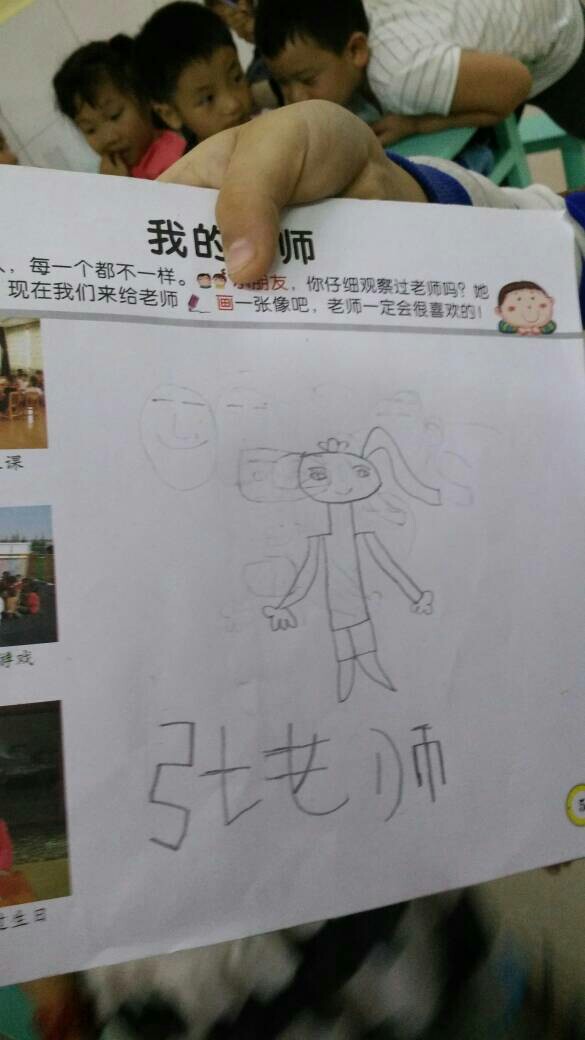 我的 师
，每一个都不一样。小朋友，你仔细观察过老师吗？她
现在我们来给老师画一张像吧，老师一定会很喜欢的！
课
游戏
过生日
张老师